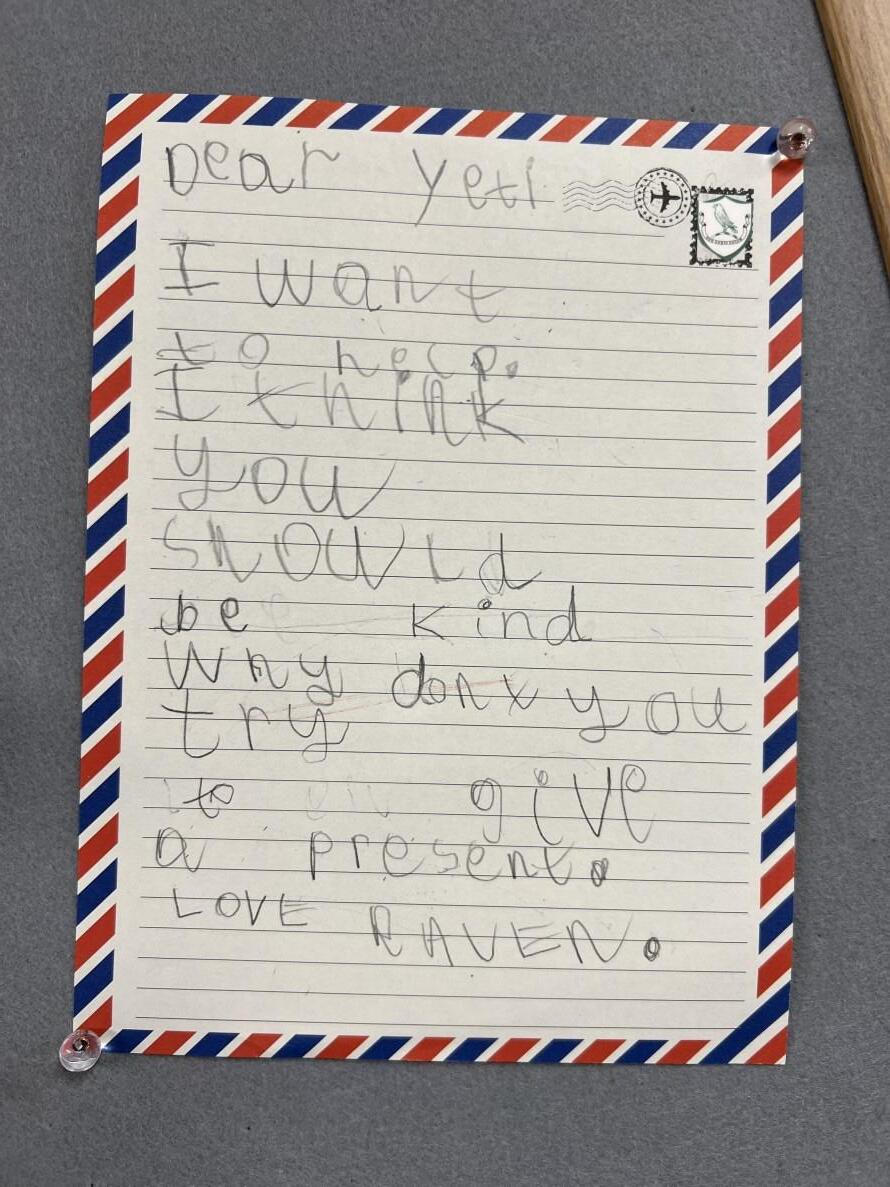 Dear Yeti
I want
to help.
I think
you
should
be kind
Why dont you
try
to give
a present.
LOVE RAVEN.